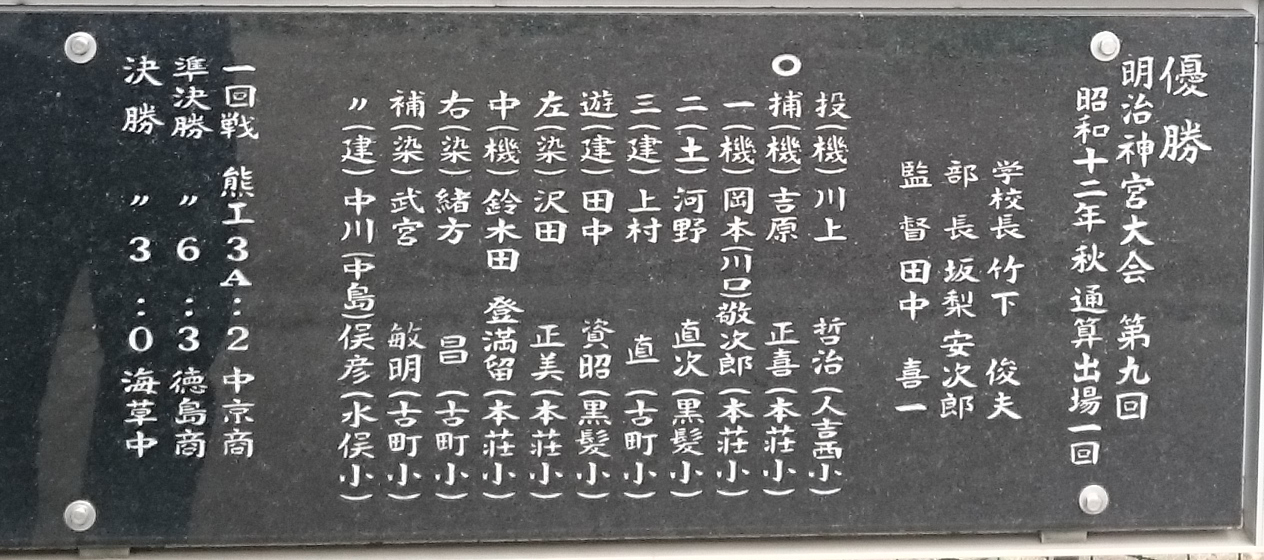 優勝
明治神宮大会 第九回
昭和十二年秋 通算出場一回
学校長 竹下 俊夫
部長 坂梨 安次郎
監督 田中 喜一
投(機)川上 哲治(人吉西小)
○捕(機)吉原 正喜(本荘小)
一(機)岡本(川口)敬次郎(本荘小)
二(土)河野 直次(黒髪小)
三(建)上村 直(古町小)
遊(建)田中 資昭(黒髪小)
左(染)沢田 正美(本荘小)
中(機)鈴木田 登満留(本荘小)
右(染)緒方 昌(古町小)
補(染)武宮 敏明(古町小)
〃(建)中川(中島)俣彦(水俣小)
一回戦 熊工3A:2中京商
準決勝 〃 6:3徳島商
決勝 〃 3:0海草中